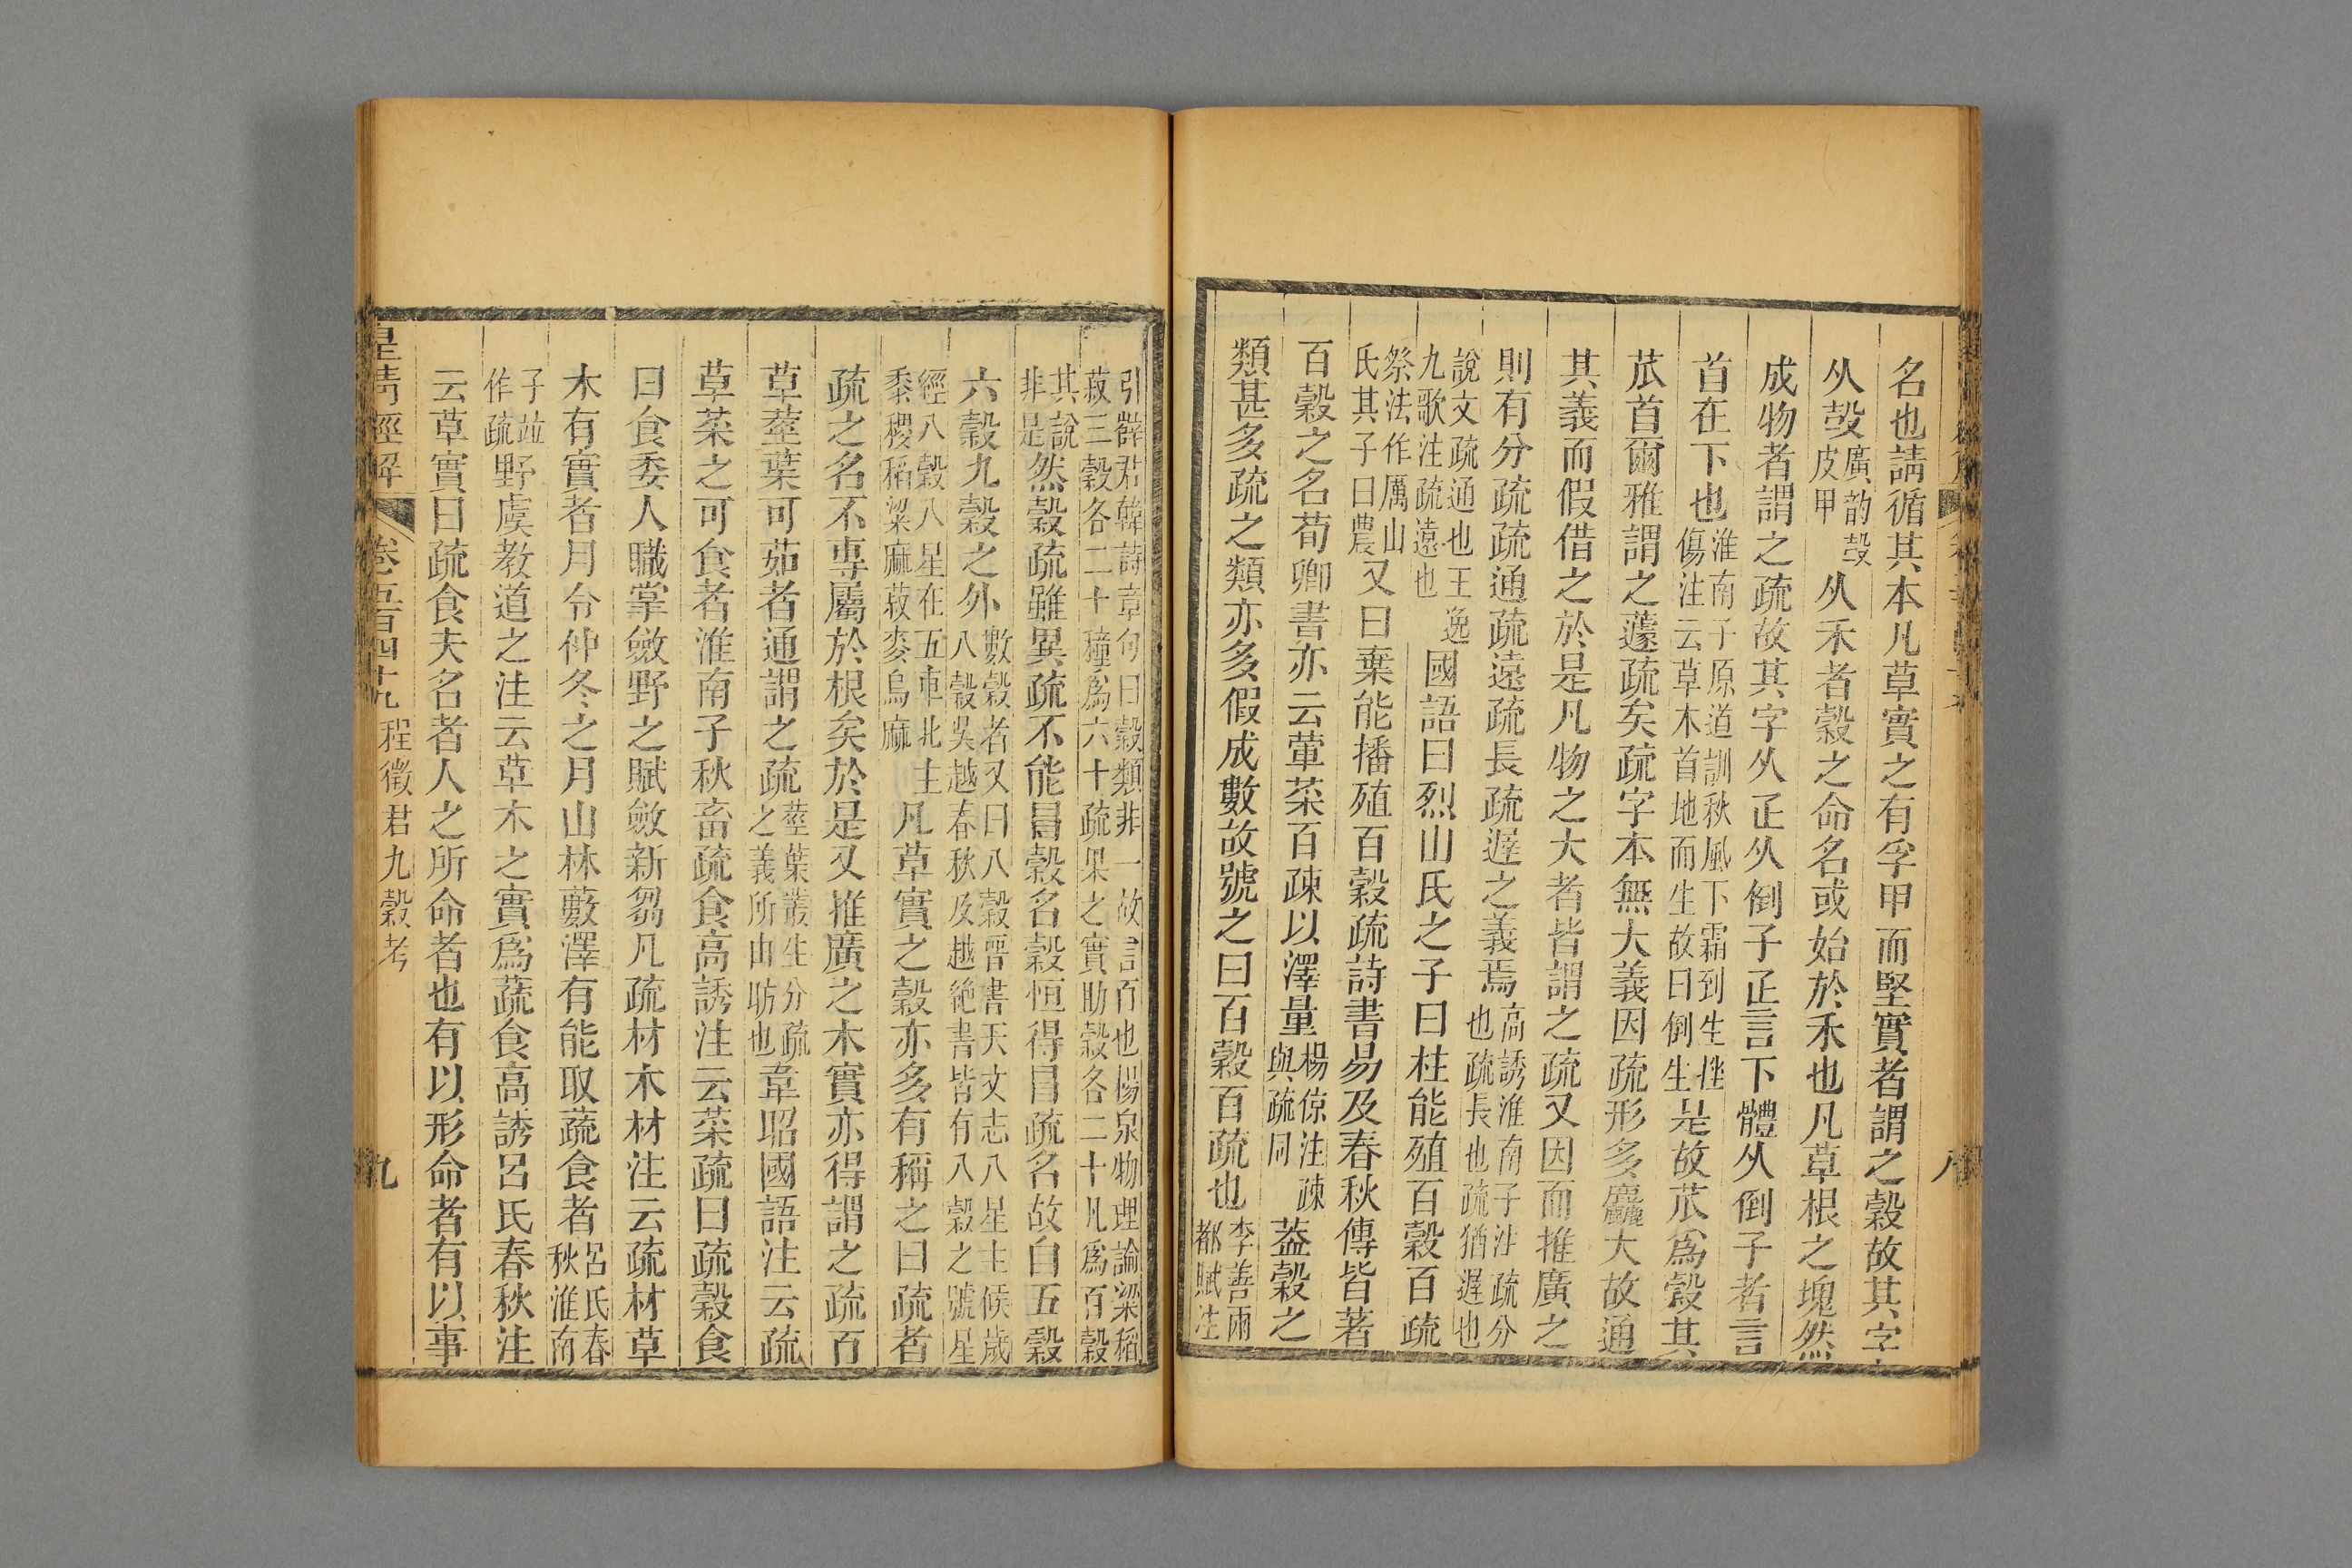 名也請循其本凡草實之有孚甲而堅實者謂之穀故其字
从𣪊廣韵𣪊皮甲从禾者穀之命名或始於禾也凡草根之塊然
成物者謂之疏故其字从㐬从倒子㐬言下體从倒子者言
首在下也淮南子原道訓秋風下霜到生挫傷注云草木首地而生故曰倒生是故苽爲穀其
苽首爾雅謂之蘧疏矣疏字本無大義因疏形多麤大故通
其義而假借之於是凡物之大者皆謂之疏又因而推廣之
則有分疏疏通疏遠疏長疏遲之義焉高誘淮南子注疏分也疏長也疏猶遲也
說文疏通也王逸九歌注疏遠也國語曰烈山氏之子曰柱能殖百穀百疏
祭法作厲山氏其子曰農又曰棄能播殖百穀疏詩書易及春秋傳皆著
百穀之名荀卿書亦云葷菜百疎以澤量楊倞注疎與疏同葢穀之
類甚多疏之類亦多假成數故號之曰百穀百疏也李善兩都賦注
八
引辥君韓詩章句曰穀類非一故言百也楊泉物理論粱稻菽三穀各二十種爲六十疏果之實助穀各二十凡爲百穀
其說非是然穀疏雖異疏不能冒穀名穀恒得冒疏名故自五穀
六穀九穀之外數穀者又曰八穀晉書天文志八星主候歲八穀吳越春秋及越絶書皆有八穀之號星
經八穀八星在五車北主黍稷稻粱麻菽麥烏麻凡草實之穀亦多有稱之曰疏者
疏之名不專屬於根矣於是又推廣之木實亦得謂之疏百
草莖葉可茹者通謂之疏莖葉叢生分疏之義所由昉也韋昭國語注云疏
草菜之可食者淮南子秋畜疏食高誘注云菜疏曰疏穀食
曰食委人職掌斂野之賦斂新芻凡疏材木材注云疏材草
木有實者月令仲冬之月山林藪澤有能取蔬食者呂氏春秋淮南
子竝作疏野虞教道之注云草木之實爲蔬食高誘呂氏春秋注
云草實曰疏食夫名者人之所命者也有以形命者有以事
皇清經解 卷五百四十九 程徵君九穀考 九